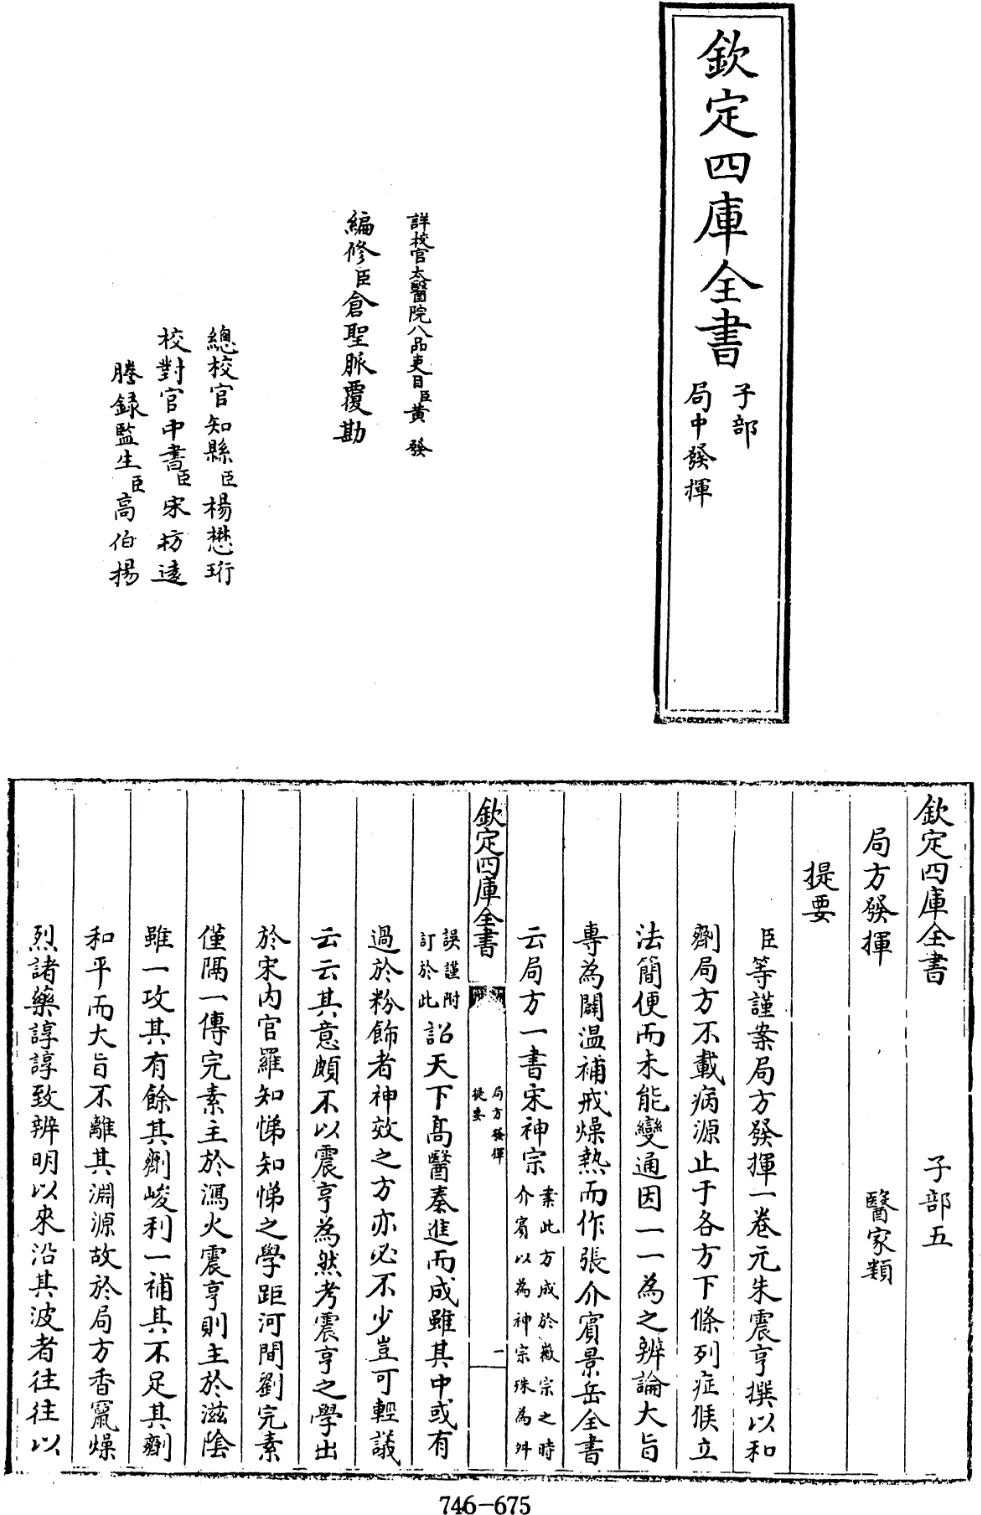 欽定四庫全書
子部
局中發揮
詳校官太醫院八品吏目臣黃發
編修臣倉聖脈覆勘
總校官知縣臣楊懋珩
校對官中書臣宋枋遠
謄錄監生臣高伯揚
欽定四庫全書 子部五
局方發揮 醫家類
提要
臣等謹案局方發揮一卷元朱震亨撰以和
劑局方不載病源止于各方下條列症候立
法簡便而未能變通因一一為之辨論大旨
專為闢温補戒燥熱而作張介賓景岳全書
云局方一書宋神宗
案此方成於徽宗之時
介賓以為神宗殊為舛
欽定四庫全書
局方發揮
提要
一
誤謹附
訂於此
詔天下高醫奏進而成雖其中或有
過於粉飾者神效之方亦必不少豈可輕議
云云其意頗不以震亨為然考震亨之學出
於宋内官羅知悌知悌之學距河間劉完素
僅隔一傳完素主於瀉火震亨則主於滋陰
雖一攻其有餘其劑峻利一補其不足其劑
和平而大旨不離其淵源故於局方香竄燥
烈諸藥諄諄致辨明以來沿其波者往往以
746-675